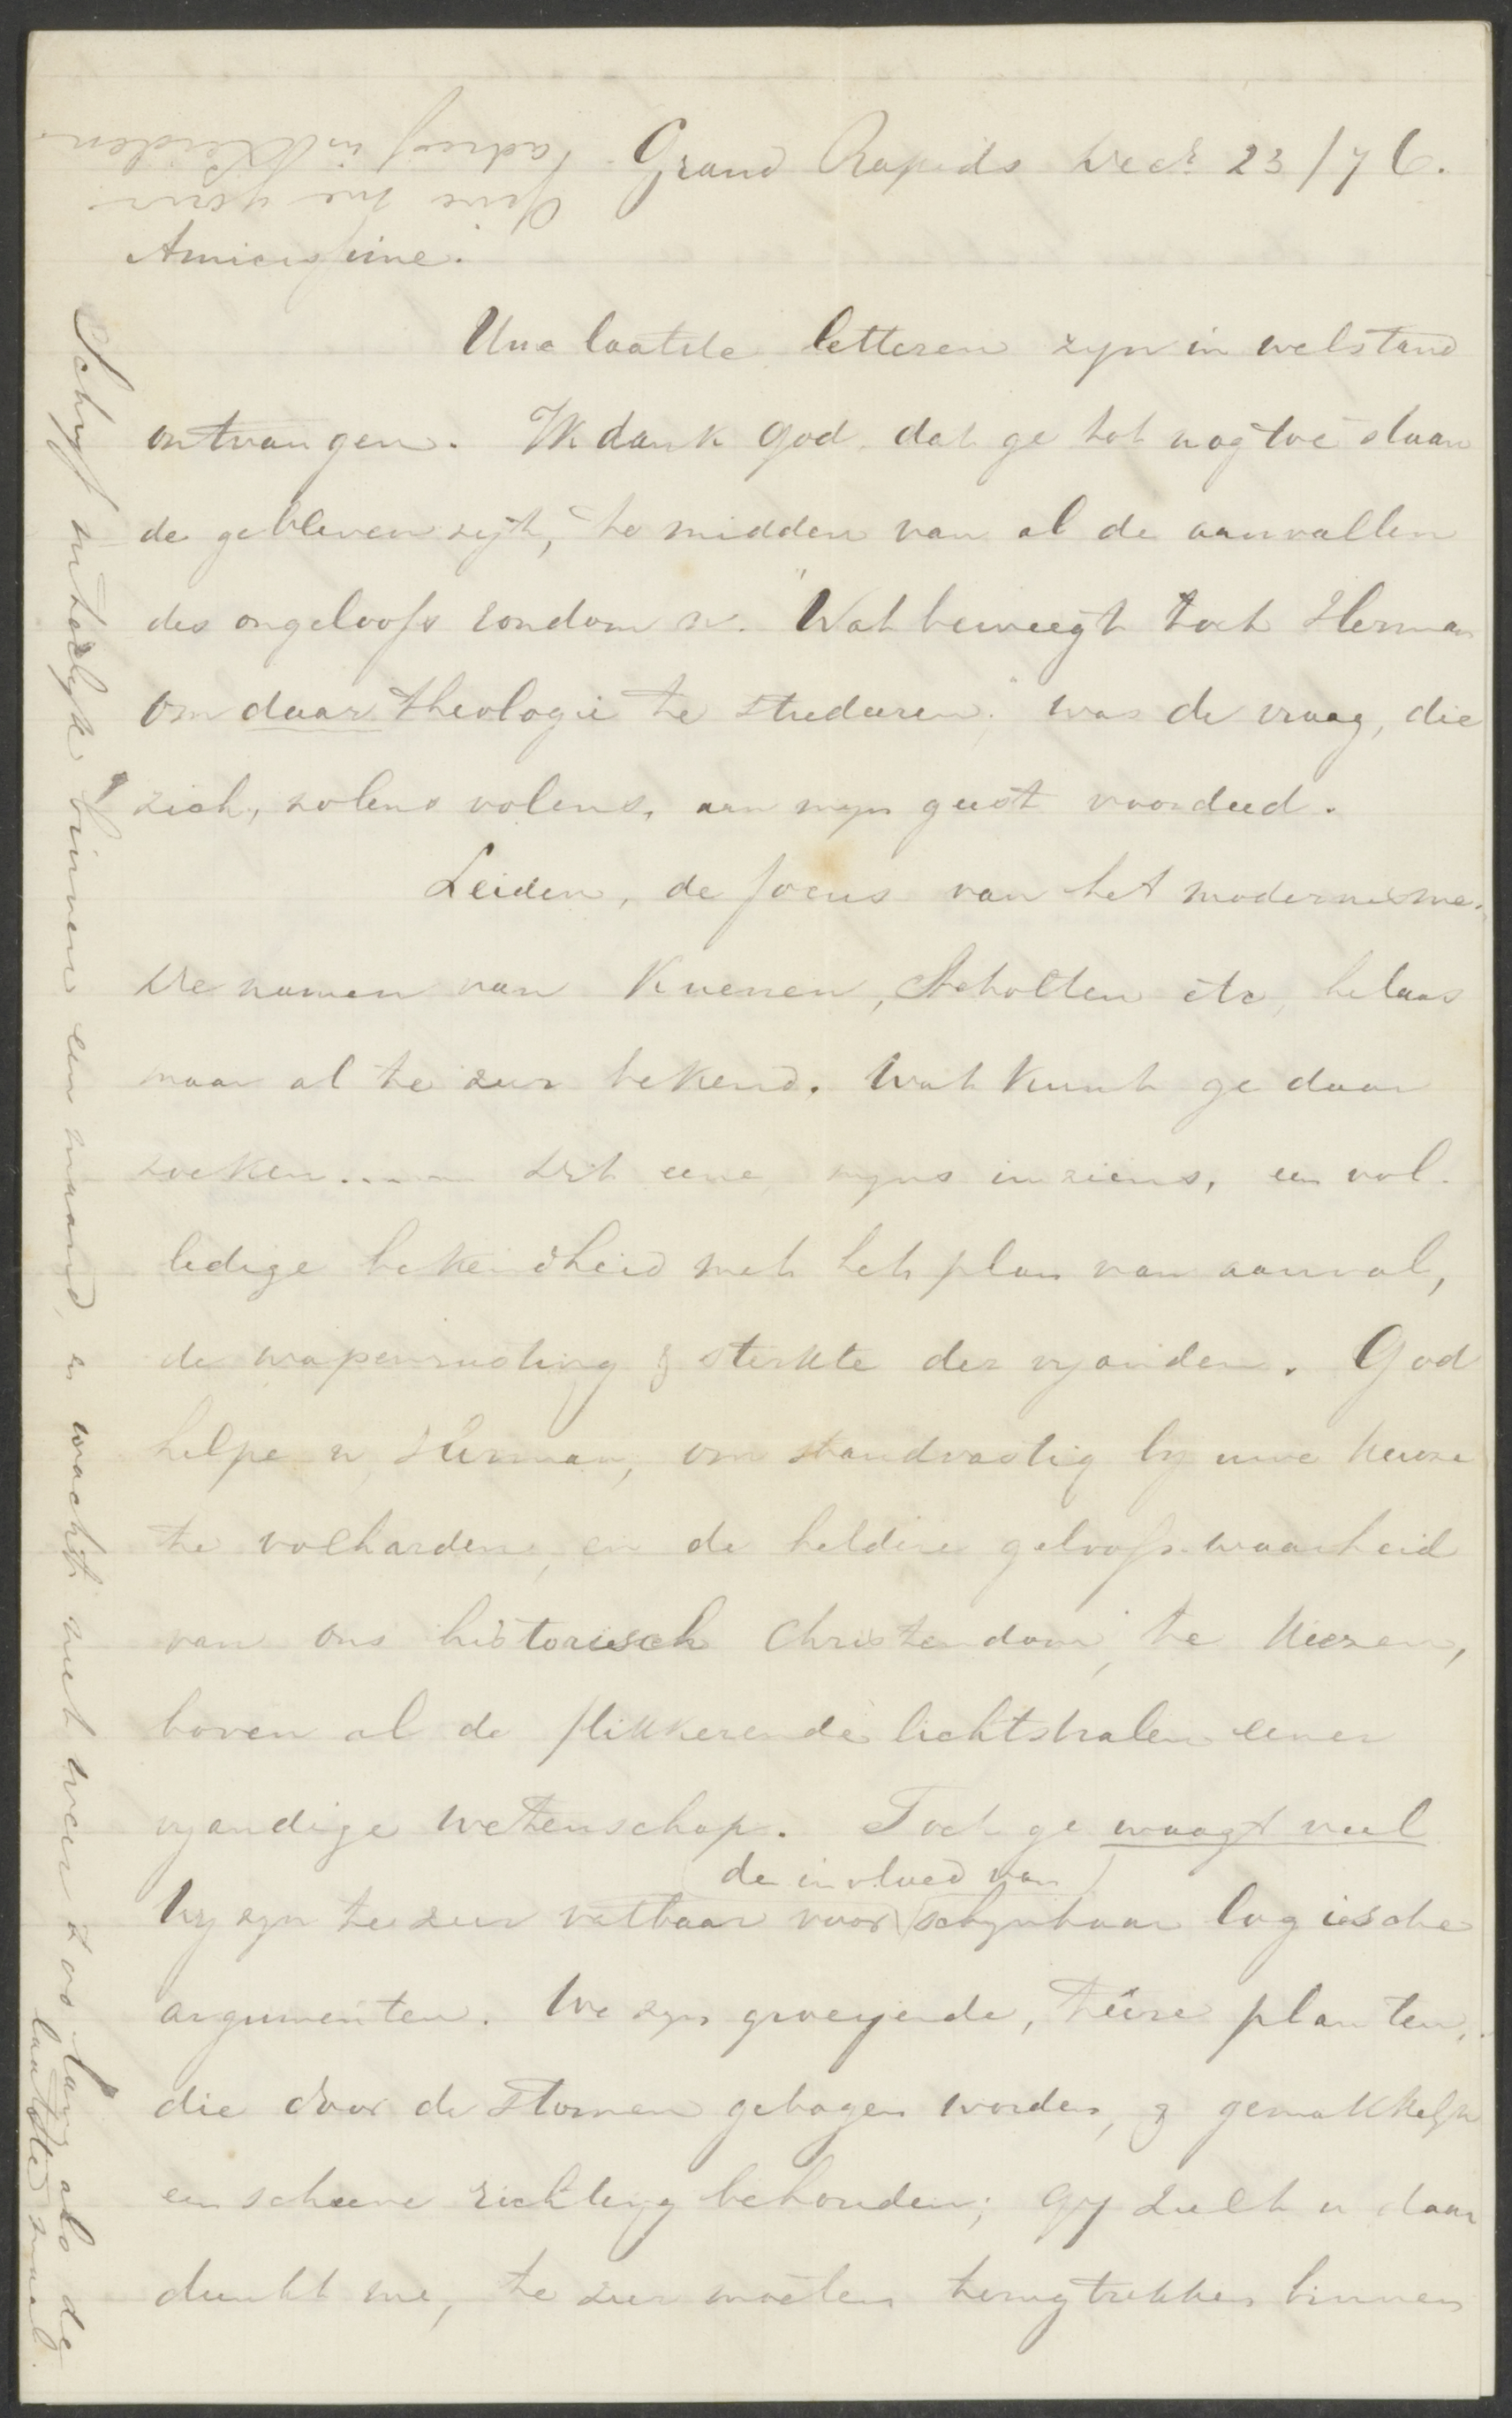 Grand Rapids Decr 23/76.
Give me your
adres in Leiden
Amicissime.
Uwe laatste letteren zyn in welstand
ontvangen. Ik dank God, dat ge tot nog toe staan
de gebleven zyt, te midden van al de aanvallen
des ongeloofs rondom u. "Wat beweegt toch Herman
om daar theologie te studeeren," was de vraag, die
zich, nolens volens, aan myn geest voordeed.
Leiden, de focus van het modernisme.
De namen van Kuenen, Scholten etc, helaas
maar al te zeer bekend. Wat kunt ge daar
zoeken..... Dit eene, myns inziens, een vol-
ledige bekendheid met het plan van aanval,
de wapenrusting & sterkte der vyanden. God
helpe u, Herman, om standvastig by uwe keuze
te volharden, en de heldere geloofs-waarheid
van ons historiesch Christendom, te kiezen,
boven al de flikkerende lichtstralen eener
vyandige wetenschap. Toch ge waagt veel
Wy zyn te zeer vatbaar voor (de invloed van) schynbaar logiesche
argumenten. We zyn groeyende, teere planten,
die door de stormen gebogen worden, & gemakkelyk
een scheeve richting behouden; Gy zult u daar
dunkt me, te zeer moeten terugtrekken binnen
Schryf uiterlyk binnen een maand, en wacht niet weer zoo lang als de
laatste maal.